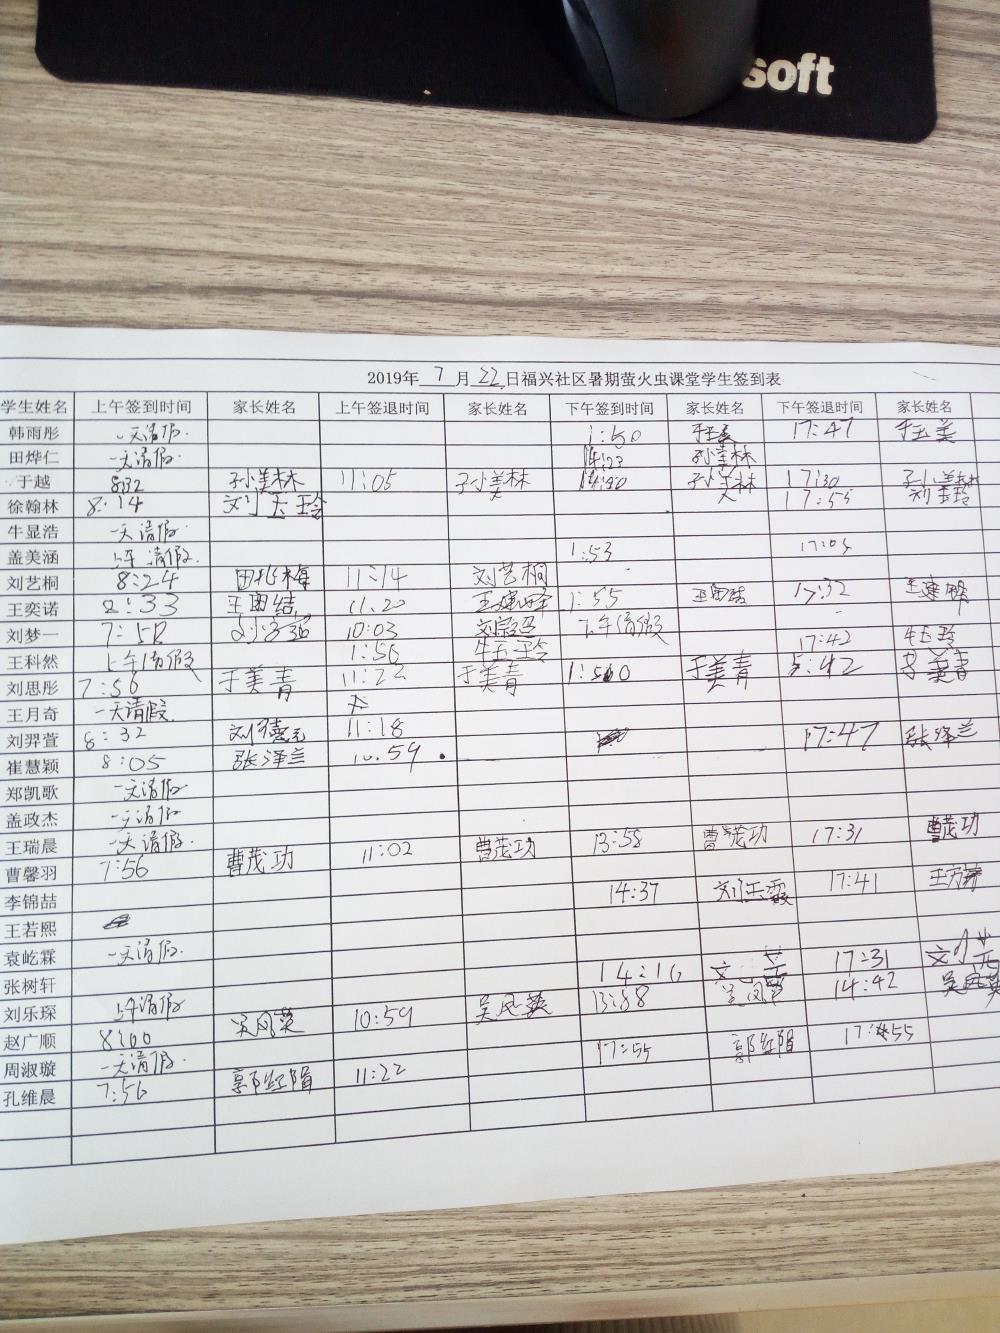 soft
2019年 7 月 22 日福兴社区暑期萤火虫课堂学生签到表
学生姓名 上午签到时间 家长姓名 上午签退时间 家长姓名 下午签到时间 家长姓名 下午签退时间 家长姓名
韩雨彤 一天请假 1:50 于玉美 17:47 于玉美
田烨仁 一天请假 14:23 孙美林
于越 8:32 孙美林 11:05 孙美林 孙美林 17:30 孙美林
徐翰林 8:14 刘玉玲 17:55 刘玉玲
牛显浩 一天请假
盖美涵 上午请假 1:53 17:05
刘艺桐 8:24 田兆梅 11:14 刘艺桐
王奕诺 8:33 11.20 1:55 17:32
刘梦一 7:58 10:03 下午请假
王科然 上午请假 1:56 牛玉玲 17:42 牛玉玲
刘思彤 7:56 于美青 11:22 于美青 于美青 5:42 于美青
王月奇 一天请假
刘羿萱 8:32 11:18 17:47 张泽兰
崔慧颖 8:05 张泽兰 10.59
郑凯歌 一天请假
盖政杰 一天请假
王瑞晨 一天请假
曹馨羽 7:56 曹茂功 11:02 曹茂功 13:58 曹茂功 17:31 曹茂功
李锦喆 14:37 刘玉霞 17:41
王若熙
袁屹霖 一天请假
张树轩 14:16 17:31
刘乐琛 上午请假 13:58 吴凤英 14:42 吴凤英
赵广顺 8:00 吴凤英 10:59 吴凤英
周淑璇 一天请假 17:55 郭红娟 17:55
孔维晨 7:56 郭红娟 11:22